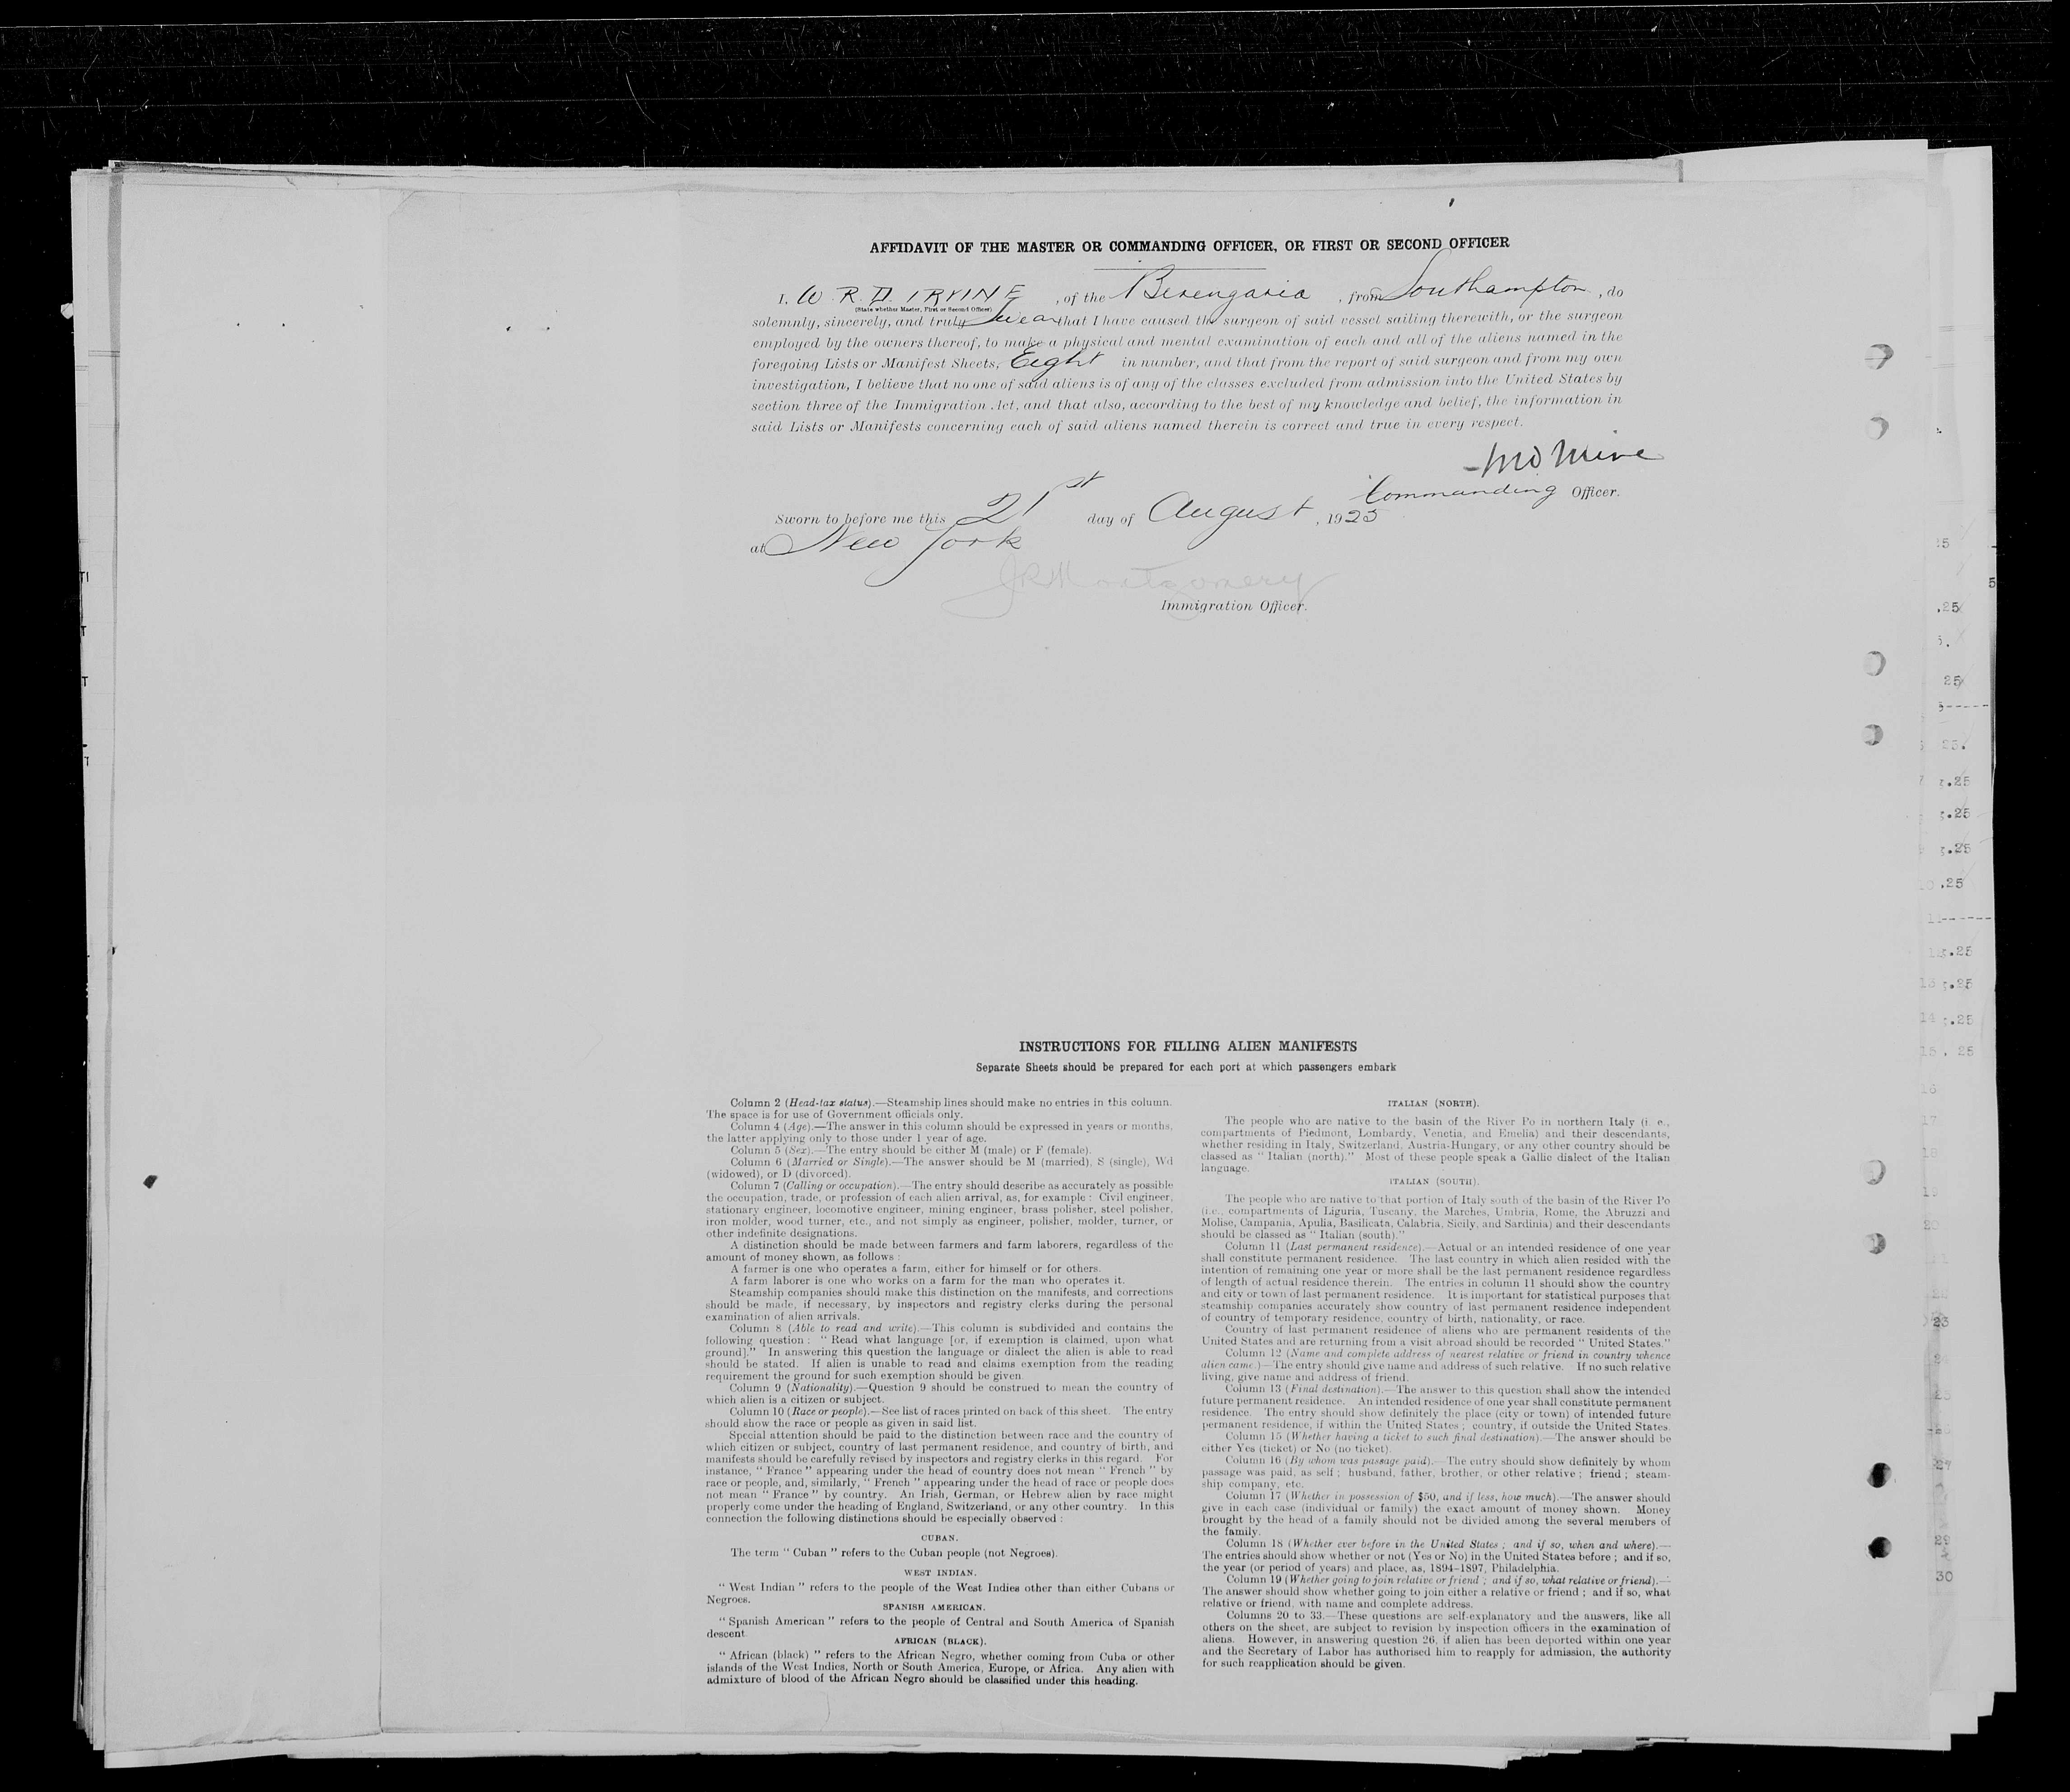 AFFIDAVIT OF THE MASTER OR COMMANDING OFFICER, OR FIRST OR SECOND OFFICER
I, W. R. D. IRVINE, of the Berengaria, from Southampton, do
(State whether Master, First or Second Officer)
solemnly, sincerely, and truly swear that I have caused the surgeon of said vessel sailing therewith, or the surgeon
employed by the owners thereof, to make a physical and mental examination of each and all of the aliens named in the
foregoing Lists or Manifest Sheets, Eight in number, and that from the report of said surgeon and from my own
investigation, I believe that no one of said aliens is of any of the classes excluded from admission into the United States by
section three of the Immigration Act, and that also, according to the best of my knowledge and belief, the information in
said Lists or Manifests concerning each of said aliens named therein is correct and true in every respect.
Commanding Officer.
Sworn to before me this 21st day of August, 1925
at New York
J R Montgomery
Immigration Officer.
INSTRUCTIONS FOR FILLING ALIEN MANIFESTS
Separate Sheets should be prepared for each port at which passengers embark
Column 2 (Head-tax status).—Steamship lines should make no entries in this column.
The space is for use of Government officials only.
Column 4 (Age).—The answer in this column should be expressed in years or months,
the latter applying only to those under 1 year of age.
Column 5 (Sex).—The entry should be either M (male) or F (female).
Column 6 (Married or Single).—The answer should be M (married), S (single), Wd
(widowed), or D (divorced).
Column 7 (Calling or occupation).—The entry should describe as accurately as possible
the occupation, trade, or profession of each alien arrival, as, for example : Civil engineer,
stationary engineer, locomotive engineer, mining engineer, brass polisher, steel polisher,
iron molder, wood turner, etc., and not simply as engineer, polisher, molder, turner, or
other indefinite designations.
A distinction should be made between farmers and farm laborers, regardless of the
amount of money shown, as follows :
A farmer is one who operates a farm, either for himself or for others.
A farm laborer is one who works on a farm for the man who operates it.
Steamship companies should make this distinction on the manifests, and corrections
should be made, if necessary, by inspectors and registry clerks during the personal
examination of alien arrivals.
Column 8 (Able to read and write).—This column is subdivided and contains the
following question : " Read what language [or, if exemption is claimed, upon what
ground]." In answering this question the language or dialect the alien is able to read
should be stated. If alien is unable to read and claims exemption from the reading
requirement the ground for such exemption should be given.
Column 9 (Nationality).—Question 9 should be construed to mean the country of
which alien is a citizen or subject.
Column 10 (Race or people).—See list of races printed on back of this sheet. The entry
should show the race or people as given in said list.
Special attention should be paid to the distinction between race and the country of
which citizen or subject, country of last permanent residence, and country of birth, and
manifests should be carefully revised by inspectors and registry clerks in this regard. For
instance, " France " appearing under the head of country does not mean " French " by
race or people, and, similarly, " French " appearing under the head of race or people does
not mean " France " by country. An Irish, German, or Hebrew alien by race might
properly come under the heading of England, Switzerland, or any other country. In this
connection the following distinctions should be especially observed :
CUBAN.
The term " Cuban " refers to the Cuban people (not Negroes).
WEST INDIAN.
" West Indian " refers to the people of the West Indies other than either Cubans or
Negroes.
SPANISH AMERICAN.
" Spanish American " refers to the people of Central and South America of Spanish
descent.
AFRICAN (BLACK).
" African (black) " refers to the African Negro, whether coming from Cuba or other
islands of the West Indies, North or South America, Europe, or Africa. Any alien with
admixture of blood of the African Negro should be classified under this heading.
ITALIAN (NORTH).
The people who are native to the basin of the River Po in northern Italy (i. e.,
compartments of Piedmont, Lombardy, Venetia, and Emelia) and their descendants,
whether residing in Italy, Switzerland, Austria-Hungary, or any other country should be
classed as " Italian (north)." Most of these people speak a Gallic dialect of the Italian
language.
ITALIAN (SOUTH).
The people who are native to that portion of Italy south of the basin of the River Po
(i.e., compartments of Liguria, Tuscany, the Marches, Umbria, Rome, the Abruzzi and
Molise, Campania, Apulia, Basilicata, Calabria, Sicily, and Sardinia) and their descendants
should be classed as " Italian (south)."
Column 11 (Last permanent residence).—Actual or an intended residence of one year
shall constitute permanent residence. The last country in which alien resided with the
intention of remaining one year or more shall be the last permanent residence regardless
of length of actual residence therein. The entries in column 11 should show the country
and city or town of last permanent residence. It is important for statistical purposes that
steamship companies accurately show country of last permanent residence independent
of country of temporary residence, country of birth, nationality, or race.
Country of last permanent residence of aliens who are permanent residents of the
United States and are returning from a visit abroad should be recorded " United States."
Column 12 (Name and complete address of nearest relative or friend in country whence
alien came.)—The entry should give name and address of such relative. If no such relative
living, give name and address of friend.
Column 13 (Final destination).—The answer to this question shall show the intended
future permanent residence. An intended residence of one year shall constitute permanent
residence. The entry should show definitely the place (city or town) of intended future
permanent residence, if within the United States ; country, if outside the United States.
Column 15 (Whether having a ticket to such final destination).—The answer should be
either Yes (ticket) or No (no ticket).
Column 16 (By whom was passage paid).—The entry should show definitely by whom
passage was paid, as self ; husband, father, brother, or other relative ; friend ; steam-
ship company, etc.
Column 17 (Whether in possession of $50, and if less, how much).—The answer should
give in each case (individual or family) the exact amount of money shown. Money
brought by the head of a family should not be divided among the several members of
the family.
Column 18 (Whether ever before in the United States ; and if so, when and where).—
The entries should show whether or not (Yes or No) in the United States before ; and if so,
the year (or period of years) and place, as, 1894-1897, Philadelphia.
Column 19 (Whether going to join relative or friend ; and if so, what relative or friend).—
The answer should show whether going to join either a relative or friend ; and if so, what
relative or friend, with name and complete address.
Columns 20 to 33.—These questions are self-explanatory and the answers, like all
others on the sheet, are subject to revision by inspection officers in the examination of
aliens. However, in answering question 26, if alien has been deported within one year
and the Secretary of Labor has authorised him to reapply for admission, the authority
for such reapplication should be given.